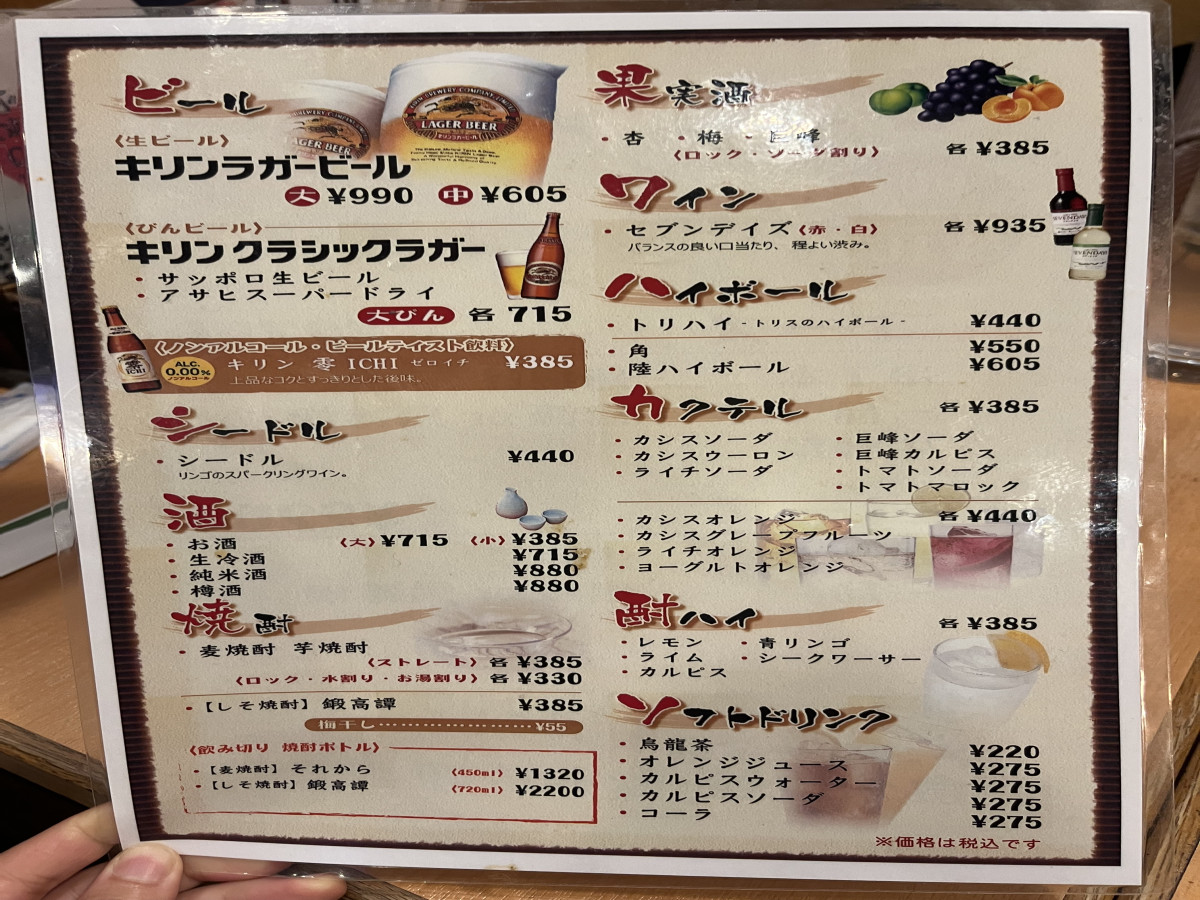 ビール
〈生ビール〉
キリンラガービール
大 ¥990 中 ¥605
〈びんビール〉
キリンクラシックラガー
・サッポロ生ビール
・アサヒスーパードライ
大びん 各 715
〈ノンアルコール・ビールテイスト飲料〉
ALC. 0.00% ノンアルコール
キリン 零 ICHI ゼロイチ ¥385
上品なコクとすっきりとした後味。
シードル
・シードル ¥440
リンゴのスパークリングワイン。
酒
・お酒 〈大〉¥715 〈小〉¥385
・生冷酒 ¥715
・純米酒 ¥880
・樽酒 ¥880
焼酎
・麦焼酎 芋焼酎
〈ストレート〉各 ¥385
〈ロック・水割り・お湯割り〉各 ¥330
・【しそ焼酎】鍛高譚 ¥385
梅干し…………………¥55
〈飲み切り 焼酎ボトル〉
・【麦焼酎】それから 〈450ml〉 ¥1320
・【しそ焼酎】鍛高譚 〈720ml〉 ¥2200
LAGER BEER
LAGER BEER
果実酒
・杏 ・梅 ・巨峰
〈ロック・ソーダ割り〉 各 ¥385
ワイン
・セブンデイズ〈赤・白〉 各 ¥935
バランスの良い口当たり、程よい渋み。
ハイボール
・トリハイ -トリスのハイボール- ¥440
・角 ¥550
・陸ハイボール ¥605
カクテル 各 ¥385
・カシスソーダ ・巨峰ソーダ
・カシスウーロン ・巨峰カルピス
・ライチソーダ ・トマトソーダ
・トマトマロック
・カシスオレンジ 各 ¥440
・カシスグレープフルーツ
・ライチオレンジ
・ヨーグルトオレンジ
酎ハイ 各 ¥385
・レモン ・青リンゴ
・ライム ・シークワーサー
・カルピス
ソフトドリンク
・烏龍茶 ¥220
・オレンジジュース ¥275
・カルピスウォーター ¥275
・カルピスソーダ ¥275
・コーラ ¥275
※価格は税込です